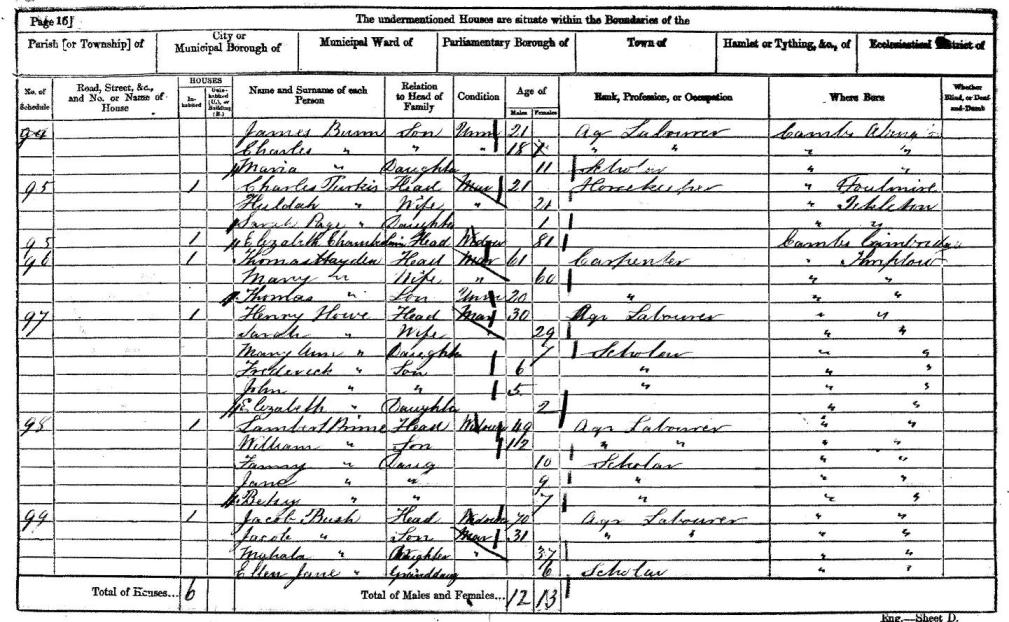 Page 15] The undermentioned Houses are situate within the Boundaries of the
Parish [or Township] of City or Municipal Borough of Municipal Ward of Parliamentary Borough of Town of Hamlet or Tything, &c., of Ecclesiastical District of
No. of Schedule Road, Street, &c., and No. or Name of House HOUSES Inhabited Uninhabited (U.), or Building (B.) Name and Surname of each Person Relation to Head of Family Condition Age of Males Females Rank, Profession, or Occupation Where Born Whether Blind, or Deaf-and-Dumb
94 James Son Unm 21 Ag Labourer Cambs
Charles " " " 18 " " " "
Maria " Daughter 11 Scholar " "
95 1 Charles Head Mar 21 Horsekeeper " Foulmire
Huldah " Wife " 21 " Ickleton
Sarah Page " Daughter 1 " "
95 1 Elizabeth Head Widow 81 Cambs Cambridge
96 1 Thomas Hayden Head Mar 61 Carpenter "
Mary " Wife " 60 " "
Thomas " Son Unm 20 " " "
97 1 Henry Howe Head Mar 30 Agr Labourer " "
Sarah " Wife 29 " "
Mary Ann " Daughter 7 Scholar " "
Frederick " Son 6 " " "
John " " 5 " " "
Elizabeth " Daughter 2 " "
98 1 Lambert Prime Head Widower 49 Agr Labourer " "
William " Son 12 " " " "
Fanny " Daug 10 Scholar " "
Jane " " 9 " " "
Betsy " " 7 " " "
99 1 Jacob Bush Head Widower 70 Agr Labourer " "
Jacob " Son Mar 31 " " " "
Mahala " Daughter " 37 " "
Ellen Jane " Granddaug 6 Scholar " "
Total of Houses... 6 Total of Males and Females... 12 13
Eng.—Sheet D.